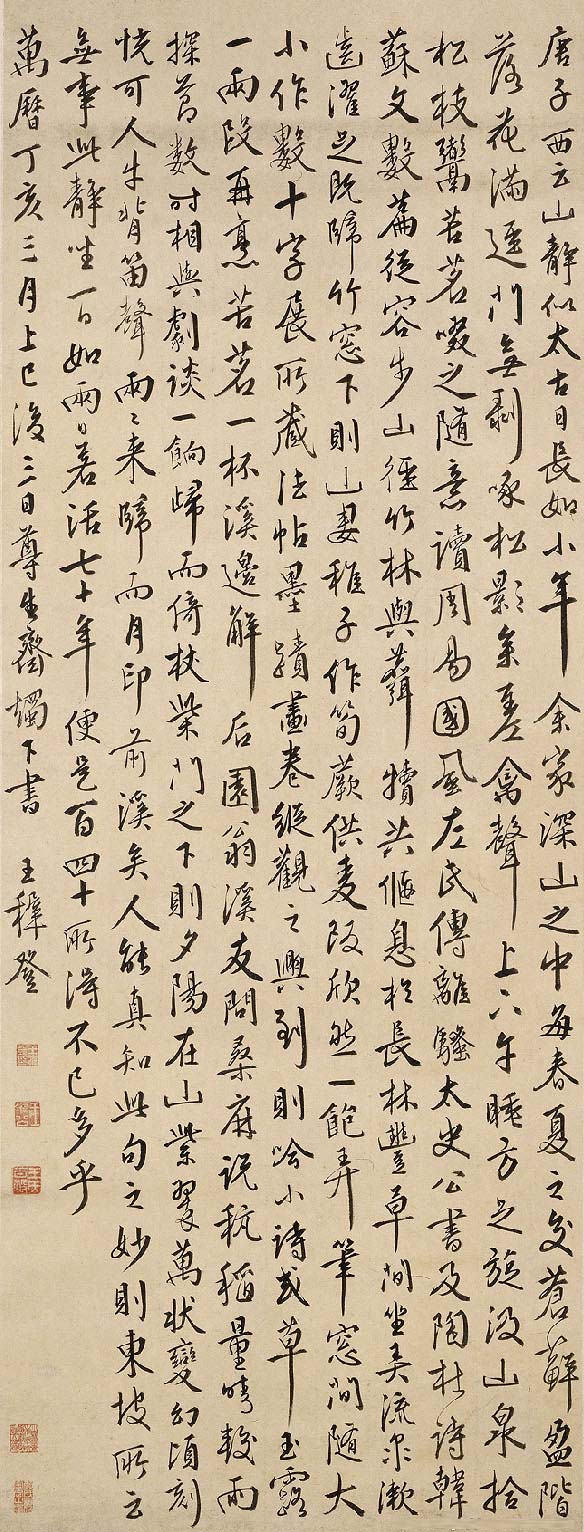 唐子西云山靜似太古日長如小年余家深山之中每春夏之交蒼蘚盈階
落花滿逕門無剝啄松影參差禽聲上下午睡方足旋汲山泉拾
松枝鬻苦茗啜之隨意讀周易國風左氏傳離騷太史公書及陶杜詩韓
蘇文數篇從容步山徑竹林與麛犢共偃息於長林豐草間坐弄流泉漱
齒濯足既歸竹窓下則山妻稚子作筍蕨供麥飯欣然一飽弄筆窓間隨大
小作數十字展所藏法帖墨蹟畫卷縱觀之興到則唫小詩或草玉露
一兩段再烹苦茗一杯溪邊解后園翁溪友問桑麻說秔稻量晴較雨
探節數時相與劇談一餉歸而倚杖柴門之下則夕陽在山紫翠萬狀變幻頃刻
恍可人牛背笛聲兩〻来歸而月印前溪矣人能真知此句之妙則東坡所云
無事此靜坐一日如兩日若活七十年便是百四十所得不已多乎
萬曆丁亥三月上巳後三日尊生齋燭下書王穉登